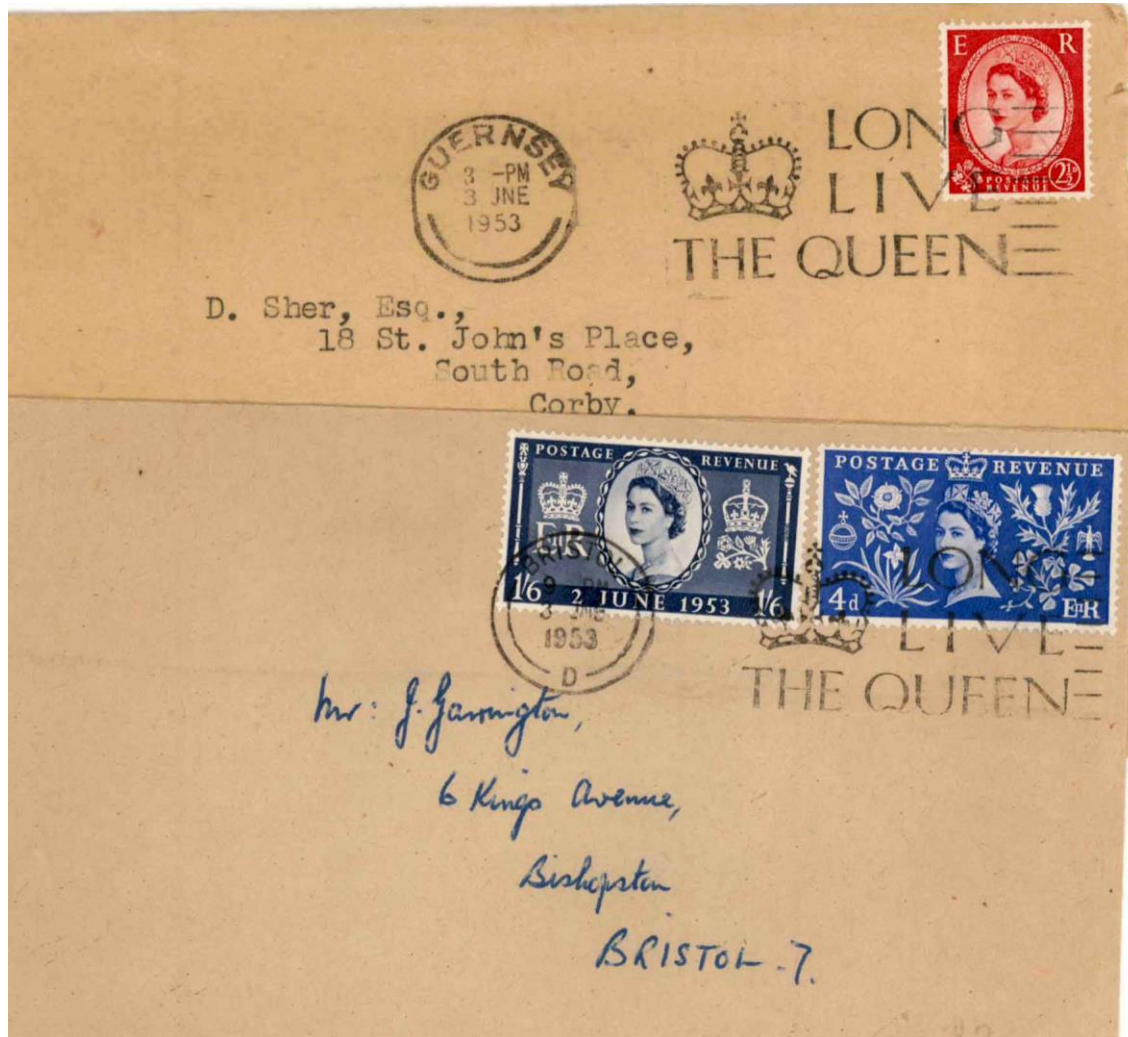 E R
POSTAGE
REVENUE
2½D
GUERNSEY
3 -PM
3 JNE
1953
LONG
LIVE
THE QUEEN
D. Sher, Esq.,
18 St. John's Place,
South Road,
Corby.
POSTAGE REVENUE
EIIR
1/6 2 JUNE 1953 1/6
POSTAGE REVENUE
4d EIIR
BRISTOL
9 PM
3 JNE
1953
D
LONG
LIVE
THE QUEEN
Mr: J. Garrington,
6 Kings Avenue,
Bishopston
BRISTOL - 7.